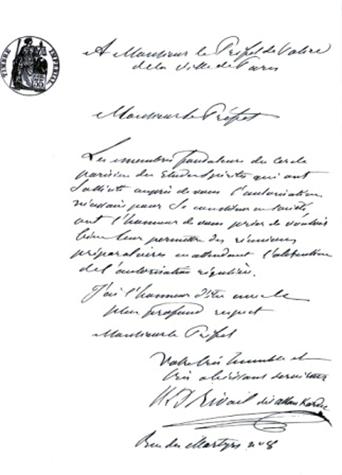 TIMBRE IMPERIAL
A Monsieur le Préfet de Police
de la ville de Paris
Monsieur le Préfet
Les membres fondateurs du Cercle
parisien des Etudes spirites qui ont
sollicité auprès de vous l'autorisation
nécessaire pour se constituer en société
ont l'honneur de vous prier de vouloir
bien leur permettre des réunions
préparatoires en attendant l'obtention
de l'autorisation régulière.
J'ai l'honneur d'être avec le
plus profond respect
Monsieur le Préfet
Votre très humble et
très obéissant serviteur
H L D Rivail dit Allan Kardec
Rue des Martyrs n° 8